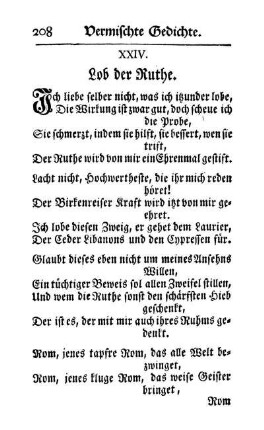 208 Vermischte Gedichte.
XXIV.
Lob der Ruthe.
Ich liebe selber nicht, was ich itzunder lobe,
Die Wirkung ist zwar gut, doch scheue ich
die Probe,
Sie schmerzt, indem sie hilft, sie bessert, wen sie
trift,
Der Ruthe wird von mir ein Ehrenmal gestift.
Lacht nicht, Hochwertheste, die ihr mich reden
höret!
Der Birkenreiser Kraft wird itzt von mir ge-
ehret.
Ich lobe diesen Zweig, er gehet dem Laurier,
Der Ceder Libanons und den Cypressen für.
Glaubt dieses eben nicht um meines Ansehns
Willen,
Ein tüchtiger Beweis sol allen Zweifel stillen,
Und wem die Ruthe sonst den schärfsten Hieb
geschenkt,
Der ist es, der mit mir auch ihres Ruhms ge-
denkt.
Rom, jenes tapfre Rom, das alle Welt be-
zwinget,
Rom, jenes kluge Rom, das weise Geister
bringet,
Rom